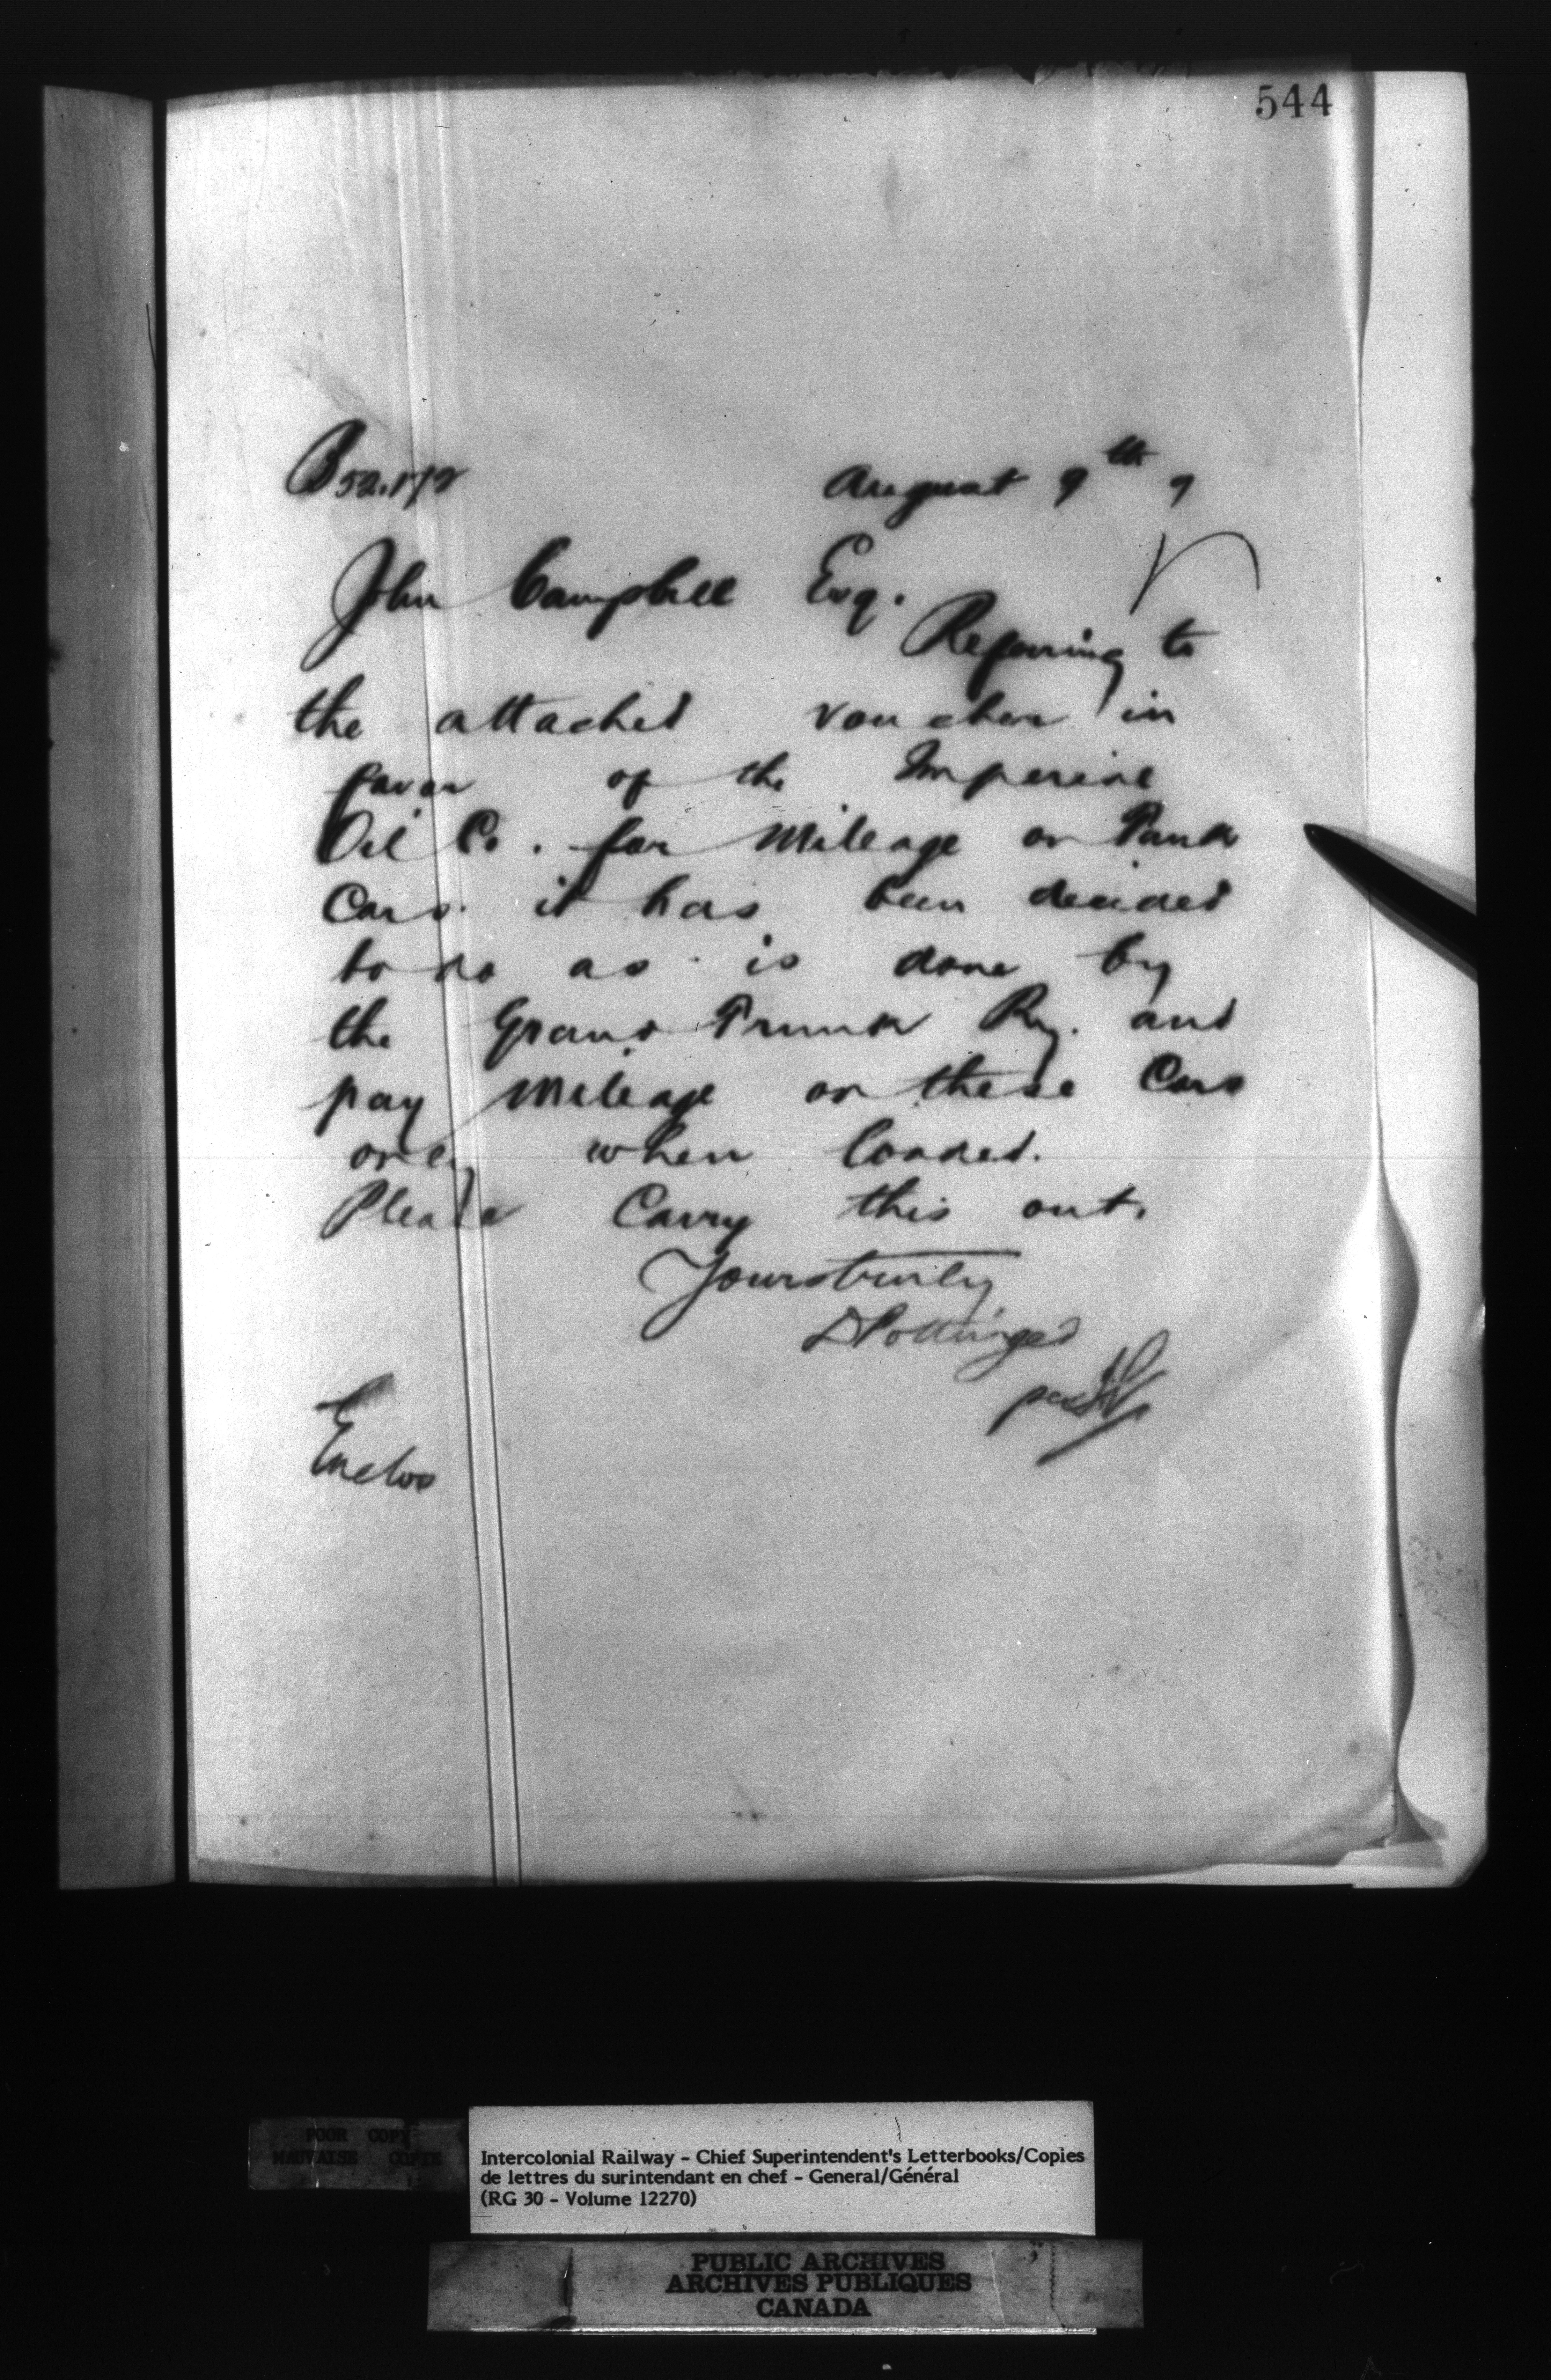 544
August 9th 9
John Campbell Esq.
Referring to
the attached voucher in
favor of the Imperial
Oil Co. for Mileage on Tank
Cars it has been decided
to do as is done by
the Grand Trunk Ry. and
pay Mileage on these Cars
only when loaded.
Please Carry this out.
Yours truly
D Pottinger
per
Enclos
POOR COPY
MAUVAISE COPIE
Intercolonial Railway - Chief Superintendent's Letterbooks/Copies
de lettres du surintendant en chef - General/Général
(RG 30 - Volume 12270)
PUBLIC ARCHIVES
ARCHIVES PUBLIQUES
CANADA